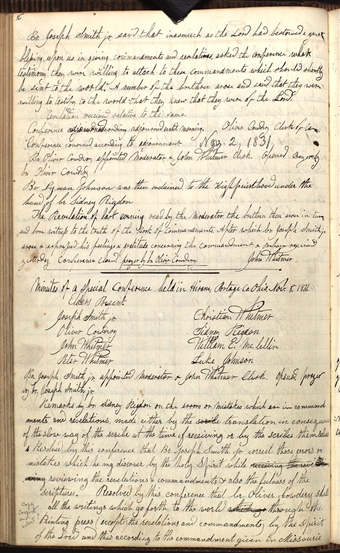 16
Br Joseph Smith jr. said that inasmuch as the Lord had bestowed a great
blessing upon us in giving commandments and revelations, asked the conference what
testimony they were willing to attach to these commandments which should shortly
be sent to the world. A number of the brethren arose and said that they were
willing to testify to the world that they knew that they were of the Lord.
Revelation received relative to the same
Conference adjourned until morning. Oliver Cowdery Clerk of Con
Conference convened according to adjournment Nov. 2, 1831.
Br Oliver Cowdery appointed Moderator & John Whitmer Clerk. Opened
br Oliver Cowdery
Br. Lyman Johnson was then ordained to the High priesthood under the
hand of br. Sidney Rigdon
The Revelation of last evening read by the Moderator the brethren then arose in turn
and bore witness to the truth of the Book of Commandments. After which br. Joseph Smith jr.
arose & expressed his feelings & gratitude concerning the commandment & received
yesterday. Conference closed prayer by br Oliver Cowdery. John Whitmer
Minutes of a Special Conference held in Hiram, Portage Co Ohio Nov. 8. 1831.
Elders Present
Joseph Smith jr. Christian Whitmer
Oliver Cowdery Sidney Rigdon
John Whitmer William E. Mc.lellin
Peter Whitmer Luke Johnson
Br. Joseph Smith jr. appointed Moderator & John Whitmer Clerk. Opened prayer
by br. Joseph Smith jr.
Remarks by br. Sidney Rigdon on the errors or mistakes which are in command
ments and revelations, made either by the translation in consequence
of the slow way of the scribe at the time of receiving or by the scribes themselves
Resolved by this conference that Br Joseph Smith jr correct those errors or
mistakes which he may discover by the holy Spirit while
reviewing the revelations & commandments & also the fulness of the
scriptures. Resolved by this conference that br Oliver Cowdery shall
all the writings which go forth to the world through the
Printing press, except the revelations and commandments, by the Spirit
of the Lord and this according to the commandment given in Missouri